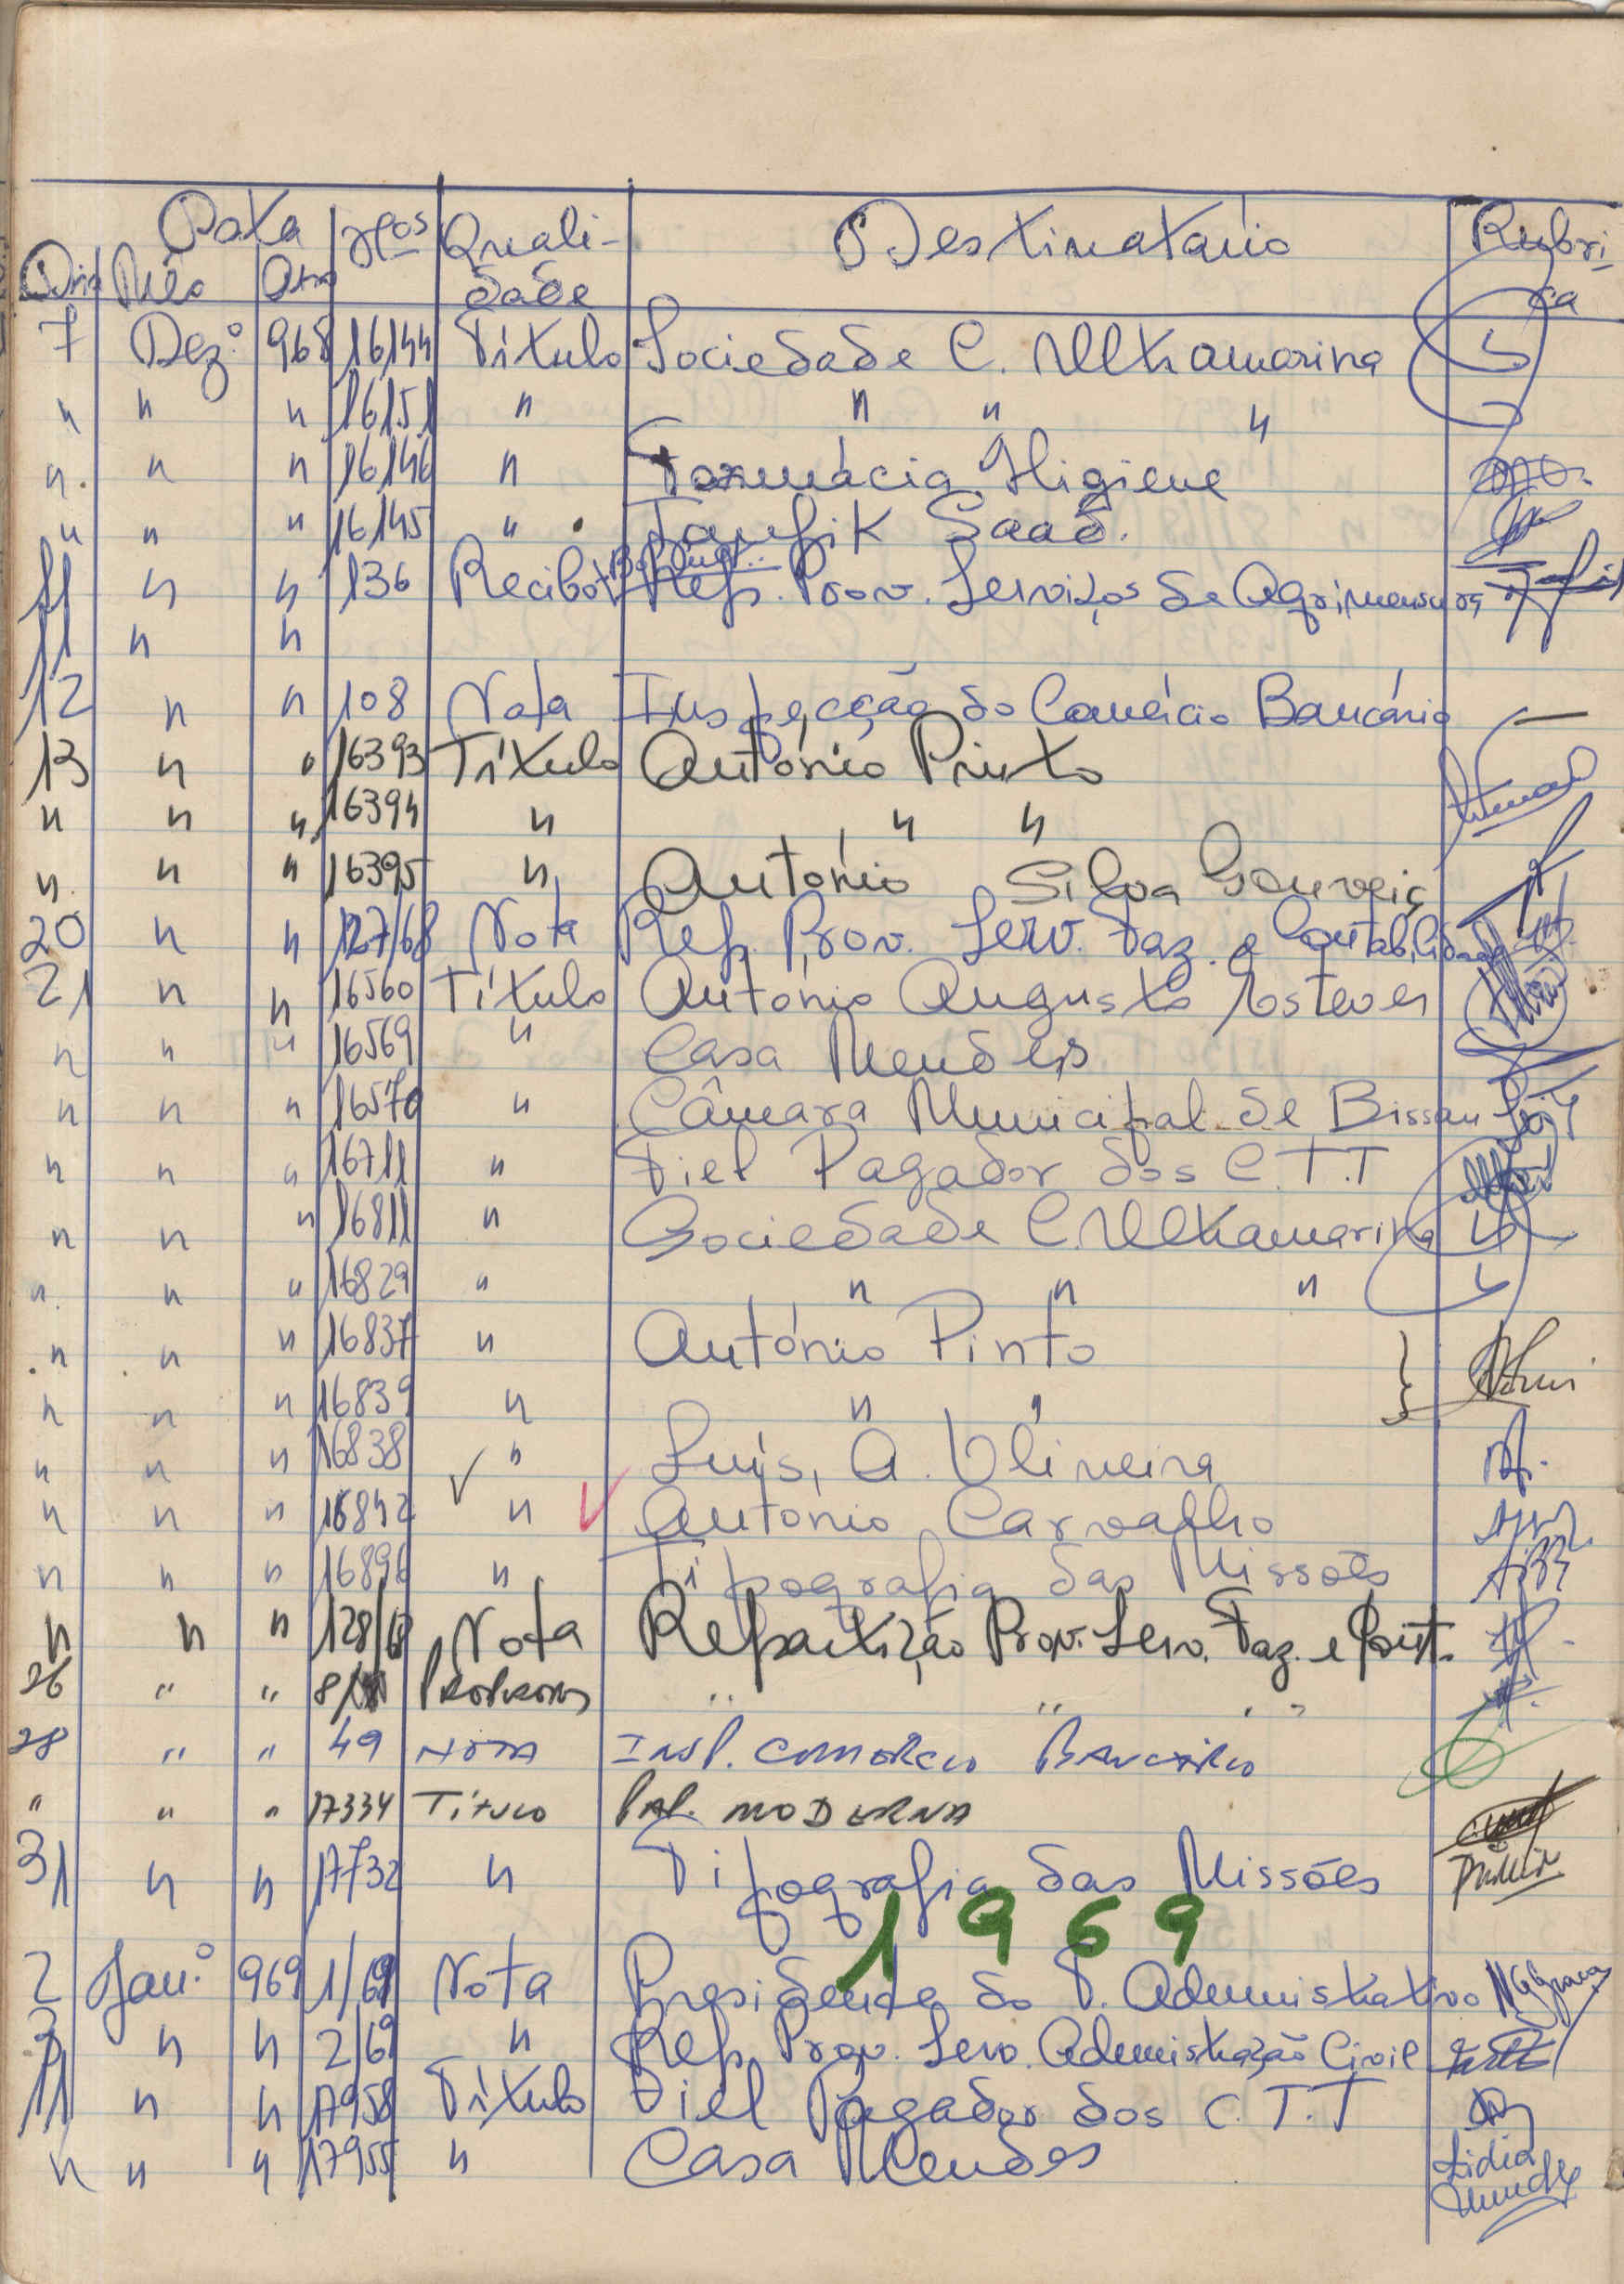 Data Nos Quali- Destinatário Rubri-
Dia Mês Ano dade ca
7 Dez.º 968 16144 Título Sociedade C. Ultramarina
" " " 16151 " " " "
" " " 16146 " Farmácia Higiene
" " " 16145 " Taufik Saad.
11 " " 136 Recibo Rep. Prov. Serviços de Agrimensura
11 " "
12 " " 108 Nota Inspecção do Comércio Bancário
13 " " 16393 Título António Pinto
" " " 16394 " " "
" " " 16395 " António Silva Gouveia
20 " " 127/68 Nota Rep. Prov. Serv. Faz. e Contabilidade
21 " " 16560 Título António Augusto Esteves
" " " 16569 " Casa Mendes
" " " 16570 " Câmara Municipal de Bissau
" " " 16711 " Fiel Pagador dos C.T.T
" " " 16811 " Sociedade C. Ultramarina
" " " 16829 " " " "
" " " 16837 " António Pinto
" " " 16839 " " "
" " " 16838 " Luís, A. Oliveira
" " " 16842 " António Carvalho
" " " 16896 " Tipografia das Missões
" " " 128/68 Nota Repartição Prov. Serv. Faz. e Cont.
26 " " " " "
28 " " 49 Nota Insp. Comércio Bancário
" " " 17334 Título Pap. Moderna
31 " " 17732 " Tipografia das Missões
1969
2 Jan.º 969 1/69 Nota Presidente do T. Administrativo
3 " " 2/69 " Rep. Prov. Serv. Admistração Civil
11 " " 17958 Título Fiel Pagador dos C.T.T
" " " 17955 " Casa Mendes Lidia
Mendes